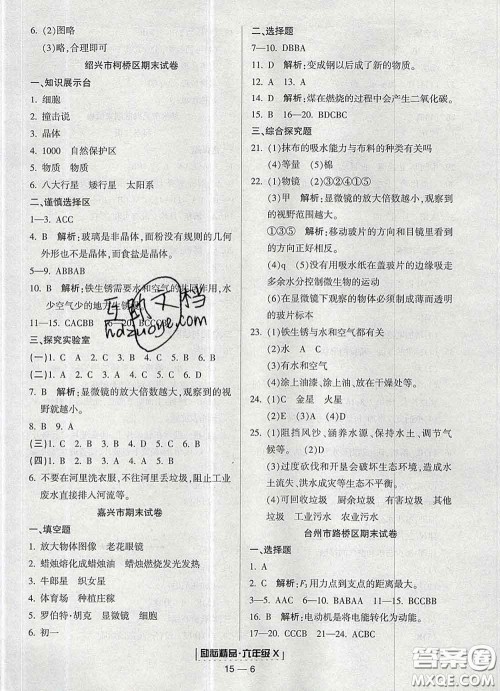 6. (2)图略
(3)略,合理即可
绍兴市柯桥区期末试卷
一、知识展示台
1. 细胞
2. 撞击说
3. 晶体
4. 1000 自然保护区
5. 物质 物质
6. 八大行星 矮行星 太阳系
二、谨慎选择区
1—3. ACC
4. B 解析:玻璃是非晶体,面粉没有规则的几何
外形也不是晶体,而食盐是晶体。
5—9. ABBAB
10. B 解析:铁生锈需要水和空气的共同作用,水
少空气少的地方生锈
11—15. CACBB 16—20. BCCCB
三、探究实验室
(一)1. C 2. B 3. A 4. C 5. A
(二)1. A 2. A 3. B 4. A 5. A 6. B
7. B 解析:显微镜的放大倍数越大,观察到的视
野就越小。
8. B 9. A
(三)1. B 2. B 3. B 4. B 5. B
(四)1. A 2. B 3. B 4. B 5. B
6. 不要在河里洗衣服、不往河里丢垃圾,阻止工业
废水直接排入河流等。
嘉兴市期末试卷
一、填空题
1. 放大物体图像 老花眼镜
2. 蜡烛熔化成蜡烛油 蜡烛燃烧发光发热
3. 牛郎星 织女星
4. 体育场 种植庄稼
5. 罗伯特·胡克 显微镜 细胞
6. 初一
二、选择题
7—10. DBBA
11. D 解析:变成钢以后成了新的物质。
12—13. CA
14. D 解析:煤在燃烧的过程中会产生二氧化碳。
15. B 16—20. BDCBC
三、综合探究题
21. (1)抹布的吸水能力与布料的种类有关吗
(4)等量 (5)棉
22. (1)物镜 (2)③②④①⑤
(3)甲 解析:显微镜的放大倍数越小,观察到
的视野范围越大。
①③⑤ 解析:移动玻片的方向和目镜里看到
的方向正好相反。
(4)q (5)没有用吸水纸在盖玻片的边缘吸走
多余水分控制微生物的运动
(6)显微镜下观察的物体必须制成薄而透明
的玻片标本
23. (1)铁生锈与水和空气都有关
(2)水 A
(3)空气 C
(4)涂上油漆、涂上油、放在干燥处等。
24. (1)C 金星 火星
(2)A (3)B (4)D
25. (1)阻挡风沙,涵养水源、调节气候、保持水
土等。
(3)过度砍伐和开垦会破坏生态环境,造成水
土流失、洪水、沙尘暴等生态灾难。
(4)可回收垃圾 厨余垃圾 有害垃圾 其他
垃圾 工业污水 农业污水 生活污水
台州市路桥区期末试卷
一、选择题
1. A
2. C 解析:F₁ 用力点到支点的距离更大。
3—5. AAC 6—10. BBACC 11—15. BCCBB
16. B 解析:电动机是将电能转变为动能的装置。
17—20. CCAC 21—22. BB
励耘精品·六年级X
15—6
互助文档
hdzuoye.com
答案圈
MXQE.COM